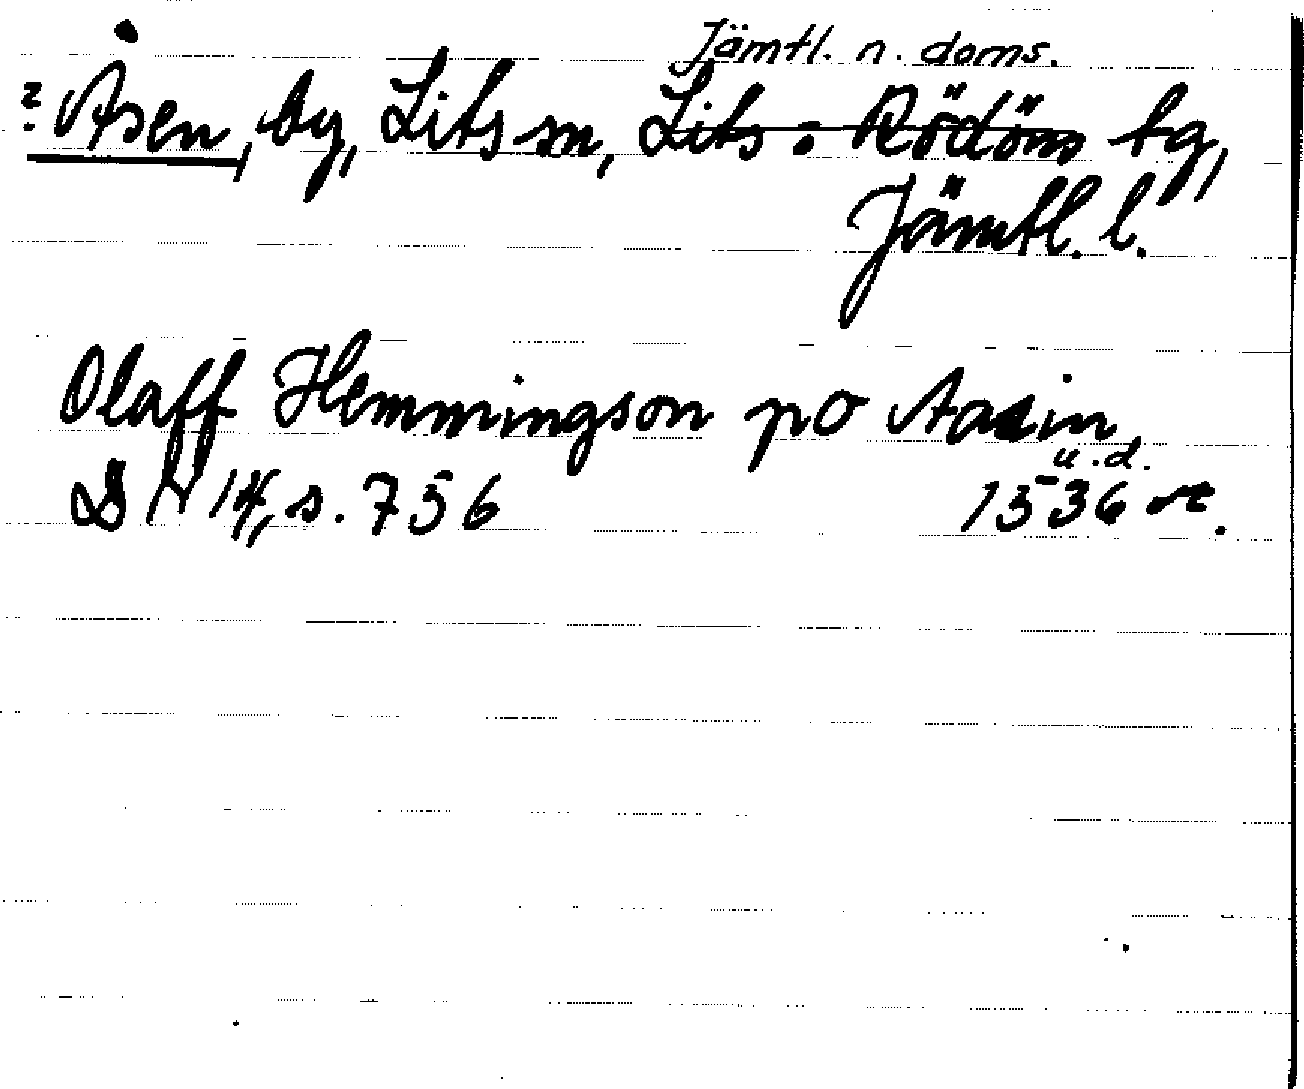 Jämtl. n. doms.
? Åsen, by, Lits sn, Lits o. Rödöns tg,
Jämtl. l.
Olaff Hemmingson po Aasin
u.d.
DN 14, s. 756 1536 rt.